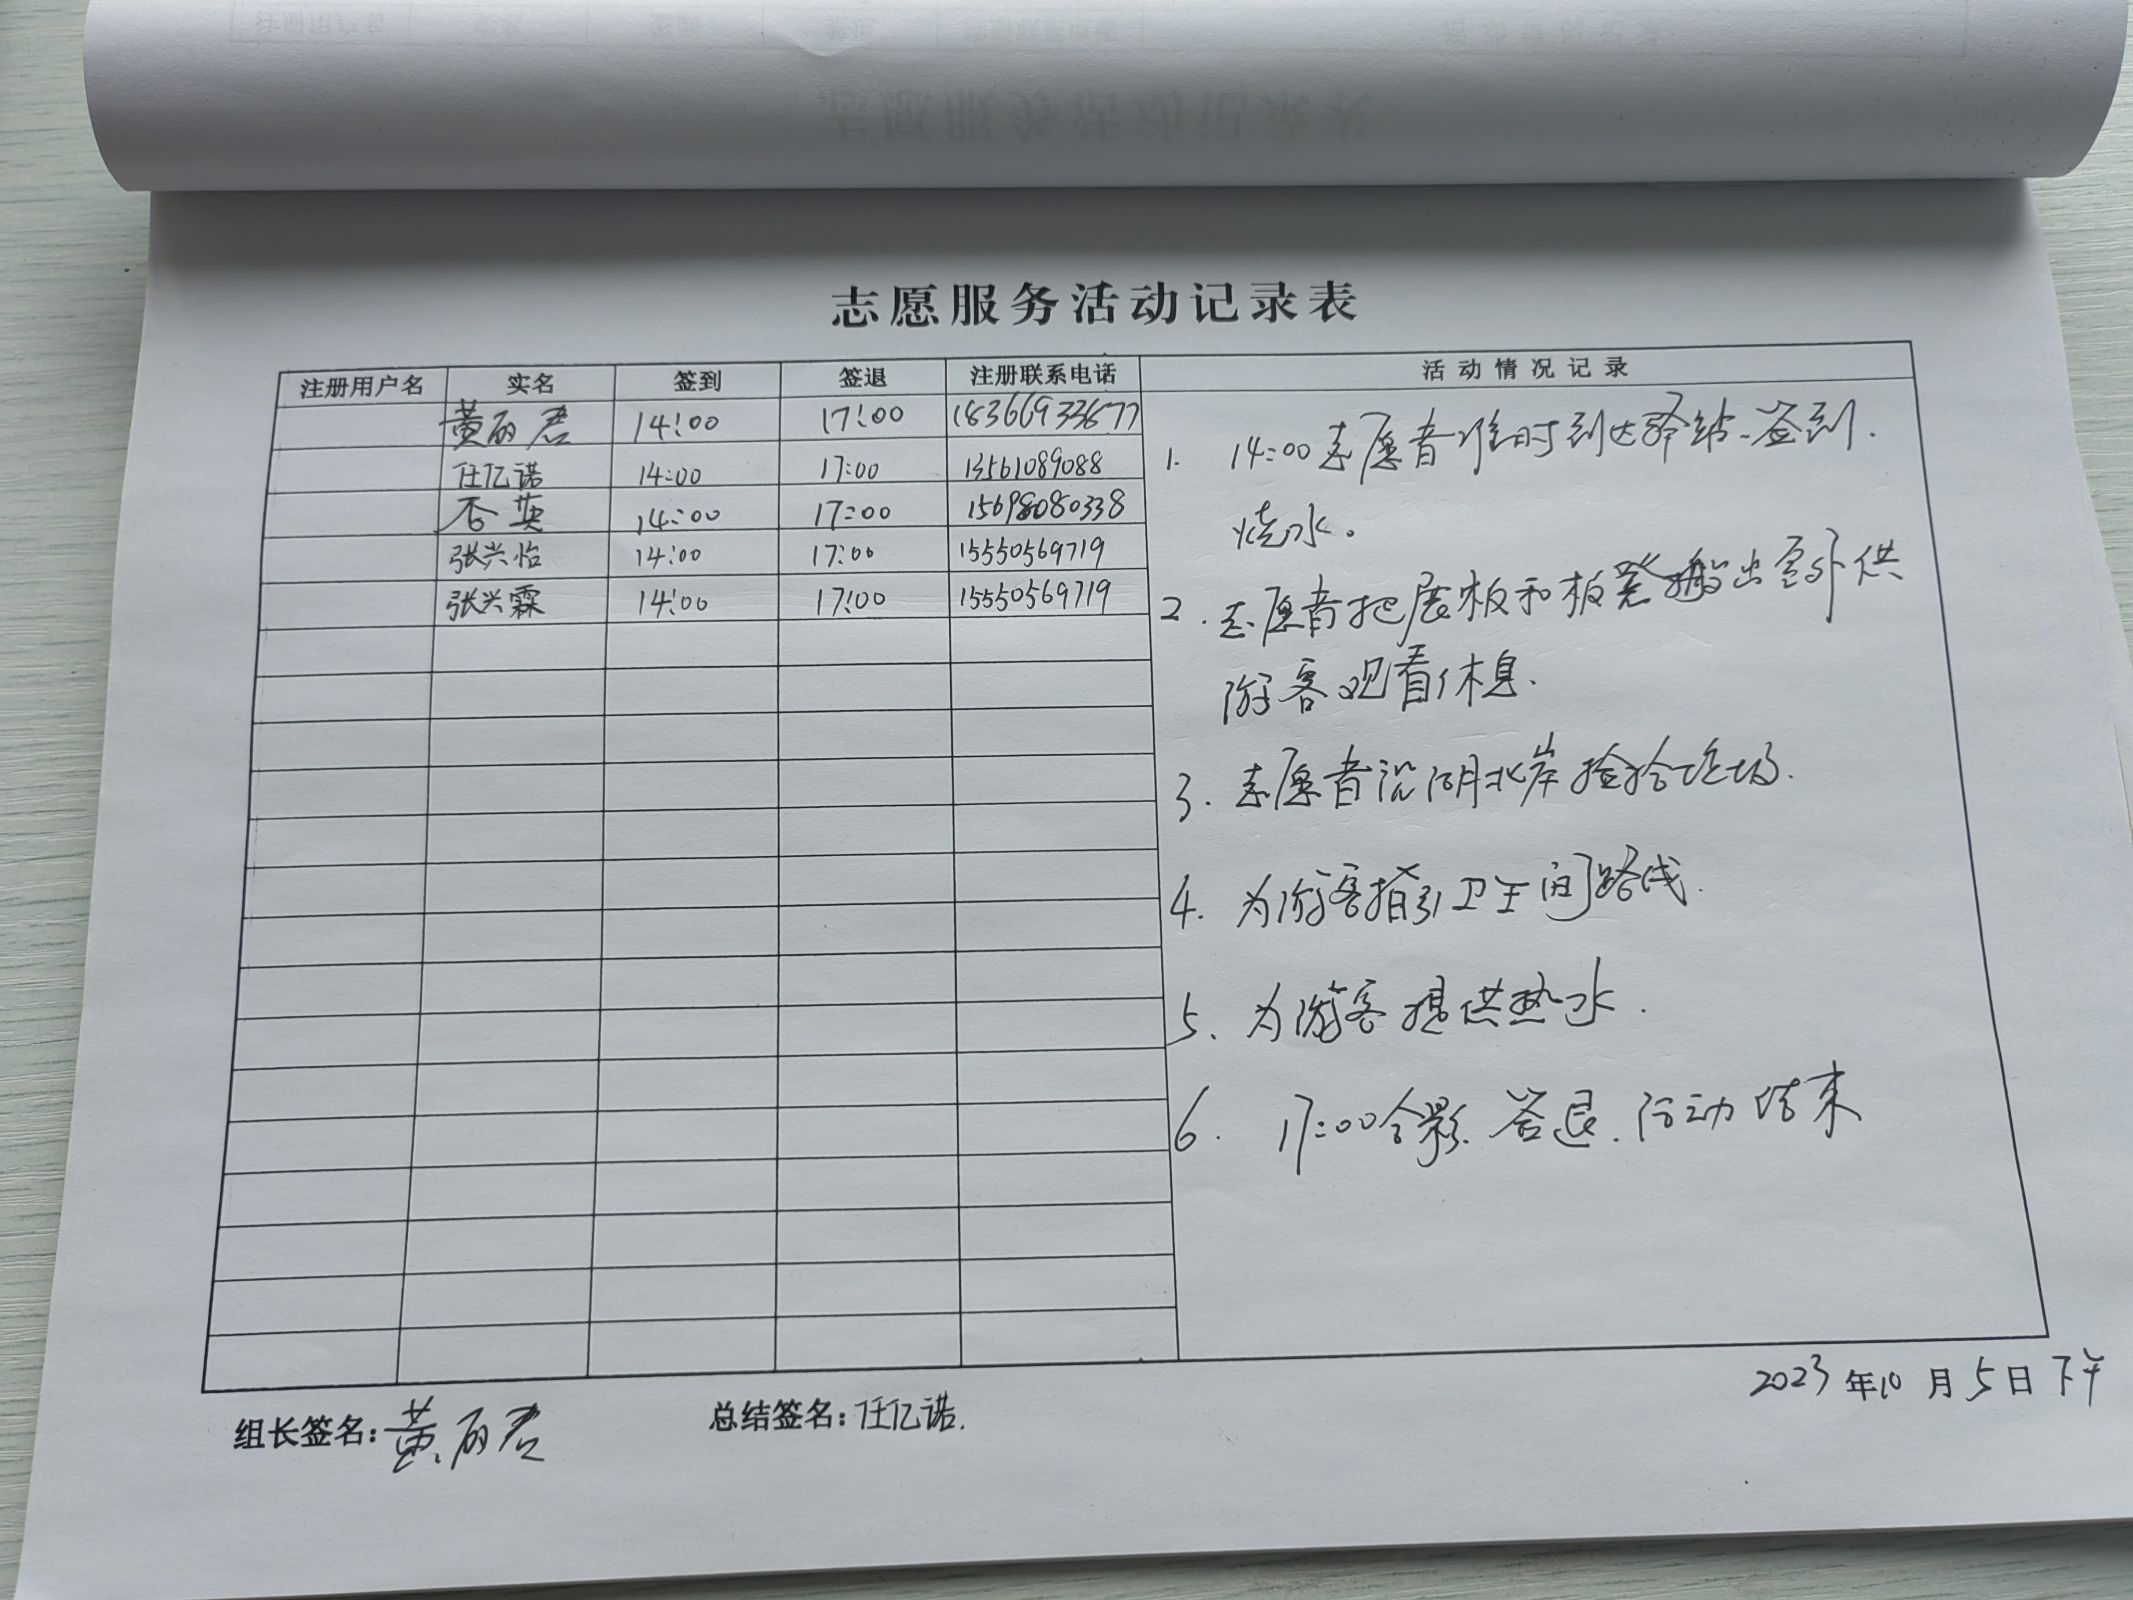 志愿服务活动记录表
注册用户名 实名 签到 签退 注册联系电话 活动情况记录
黄丽君 14:00 17:00 18366933677
任亿诺 14:00 17:00 13561089088
杏英 14:00 17:00 15698080338
张兴怡 14:00 17:00 15550569719
张兴霖 14:00 17:00 15550569719
1. 14:00志愿者准时到达驿站、签到.
烧水。
2.志愿者把展板和板凳搬出室外供
游客观看休息.
3.志愿者沿湖北岸捡拾垃圾.
4.为游客指引卫生间路线.
5、为游客提供热水.
6. 17:00合影.签退.活动结束
2023年10月5日下午
组长签名:黄丽君 总结签名:任亿诺.